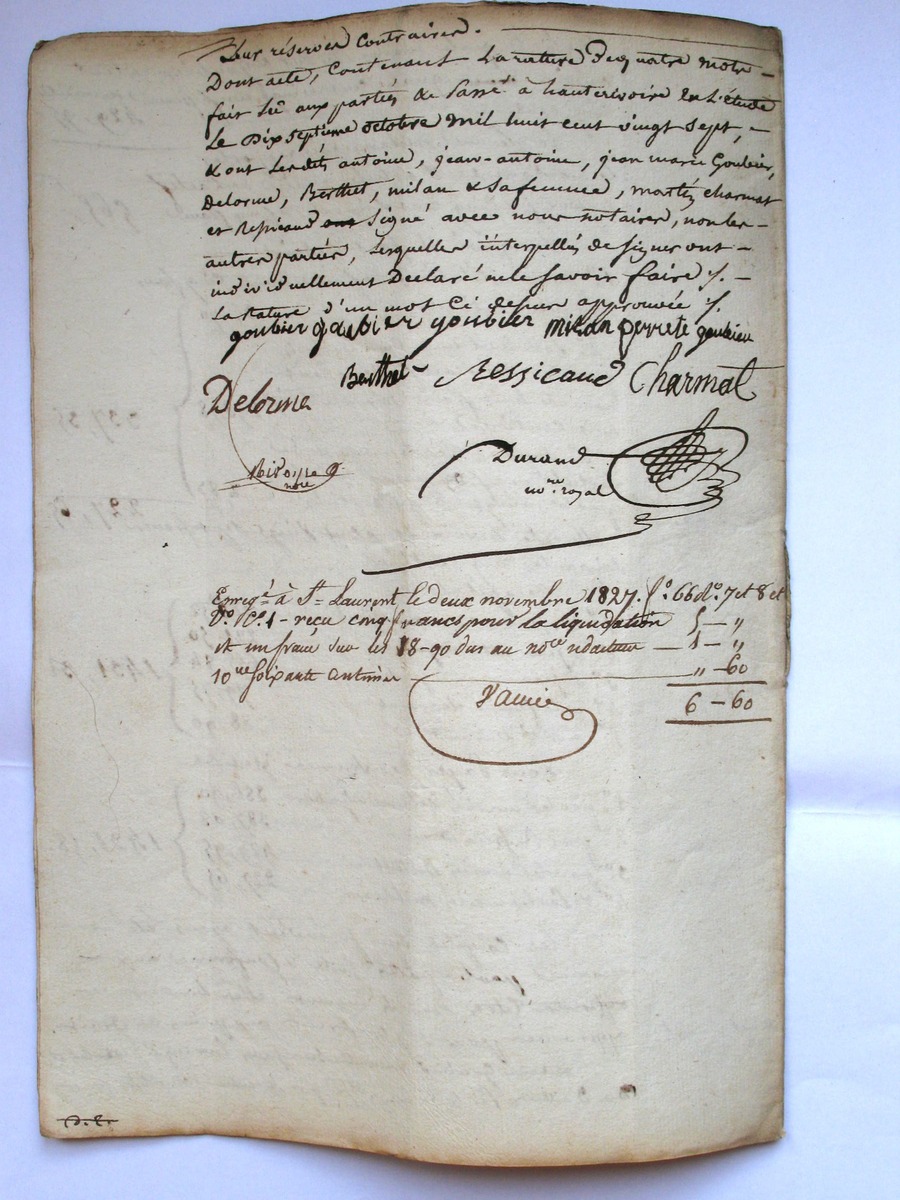 Leurs réserves contraires.
Dont acte, contenant la rature de quatre mots –
fait lu aux parties de à hauterivoire en l'étude
Le Dix septieme octobre mil huit cent vingt sept, –
& ont lesdits antoine, jean-antoine, jean marie Goubier,
Delorme, Berthet, milan & sa femme, charmat
et Ressicaud signé avec nous notaires, non les –
autres parties, lesquelles interpellés de signer ont –
individuellement Declaré ne le savoir faire ./. –
La Rature d'un mot Ci dessus approuvée ./.
goubier goubier goubier milan perrete goubier
Delorme Berthet Ressicaud Charmat
Durand
nore nore royal
Enregé à St Laurent le deux novembre 1827. fo. 66 do. 7 et 8 et
Vo. Ce. 1 – reçu cinq francs pour la liquidation 5 – "
et un franc sur les 18-90 dus au nore rédacteur — 1 – "
10me soixante centimes — " – 60
6 – 60